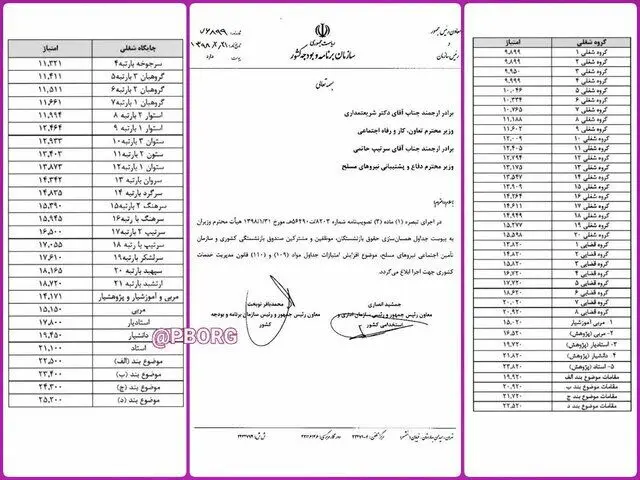 جایگاه شغلی امتیاز
سرجوخه بارتبه۴ ۱۱,۳۲۱
گروهبان ۳ بارتبه۵ ۱۱,۴۱۱
گروهبان ۲ بارتبه۶ ۱۱,۵۱۱
گروهبان ۱ بارتبه۷ ۱۱,۶۶۱
استوار ۲ بارتبه ۸ ۱۱,۹۹۴
استوار ۱ بارتبه ۹ ۱۲,۴۶۴
ستوان ۳ بارتبه۱۰ ۱۲,۹۳۳
ستوان ۲ بارتبه۱۱ ۱۳,۴۰۳
ستوان ۱ بارتبه۱۲ ۱۳,۸۷۳
سروان بارتبه ۱۳ ۱۴,۳۴۲
سرگرد بارتبه ۱۴ ۱۴,۸۳۵
سرهنگ ۲ بارتبه۱۵ ۱۵,۳۹۰
سرهنگ با رتبه۱۶ ۱۵,۹۴۵
سرتیپ ۲ بارتبه ۱۷ ۱۶,۵۰۰
سرتیپ با رتبه ۱۸ ۱۷,۰۵۵
سرلشگر بارتبه ۱۹ ۱۷,۶۱۰
سپهبد بارتبه ۲۰ ۱۸,۱۶۵
ارتشبد بارتبه ۲۱ ۱۸,۷۲۰
مربی و آموزشیار و پژوهشیار ۱۴,۱۷۱
مربی ۱۵,۱۵۰
استادیار ۱۷,۸۰۰
دانشیار ۱۹,۴۵۰
استاد ۲۱,۱۰۰
موضوع بند (الف) ۲۲,۵۰۰
موضوع بند (ب) ۲۳,۴۰۰
موضوع بند (ج) ۲۴,۳۰۰
موضوع بند (د) ۲۵,۲۰۰
@PBORG
معاون رئیس جمهور
و
رئیس سازمان
ریاست جمهوری
سازمان برنامه و بودجه کشور
۷۶۸۹۹
۱۳۹۸/۲/۲۱
دارد
بسمه تعالی
برادر ارجمند جناب آقای دکتر شریعتمداری
وزیر محترم تعاون، کار و رفاه اجتماعی
برادر ارجمند جناب آقای سرتیپ حاتمی
وزیر محترم دفاع و پشتیبانی نیروهای مسلح
در اجرای تبصره (۱) ماده (۲) تصویب‌نامه شماره مورخ ۱۳۹۸/۱/۳۱ هیأت محترم وزیران
به پیوست جداول همسان‌سازی حقوق بازنشستگان، موظفین و مشترکین صندوق بازنشستگی کشوری و سازمان
تأمین اجتماعی نیروهای مسلح، موضوع افزایش امتیازات جداول مواد (۱۰۹) و (۱۱۰) قانون مدیریت خدمات
کشوری جهت اجرا ابلاغ می‌گردد.
جمشید انصاری
معاون رئیس جمهور و رئیس سازمان اداری و
استخدامی کشور
محمدباقر نوبخت
معاون رئیس جمهور و رئیس سازمان برنامه و بودجه
کشور
گروه شغلی امتیاز
گروه شغلی ۱ ۹,۸۹۹
گروه شغلی ۲ ۹,۸۹۹
گروه شغلی ۳ ۹,۹۵۰
گروه شغلی ۴ ۹,۹۹۹
گروه شغلی ۵ ۱۰,۰۴۶
گروه شغلی ۶ ۱۰,۳۳۴
گروه شغلی ۷ ۱۰,۷۶۵
گروه شغلی ۸ ۱۱,۱۸۸
گروه شغلی ۹ ۱۱,۶۰۲
گروه شغلی ۱۰ ۱۲,۰۰۹
گروه شغلی ۱۱ ۱۲,۴۰۵
گروه شغلی ۱۲ ۱۲,۷۹۴
گروه شغلی ۱۳ ۱۳,۱۷۵
گروه شغلی ۱۴ ۱۳,۵۴۷
گروه شغلی ۱۵ ۱۳,۹۰۹
گروه شغلی ۱۶ ۱۴,۲۶۴
گروه شغلی ۱۷ ۱۴,۶۱۱
گروه شغلی ۱۸ ۱۴,۹۴۹
گروه شغلی ۱۹ ۱۵,۲۷۷
گروه شغلی ۲۰ ۱۵,۵۹۸
گروه قضایی ۱ ۱۳,۸۲۰
گروه قضایی ۲ ۱۴,۸۲۰
گروه قضایی ۳ ۱۵,۸۲۰
گروه قضایی ۴ ۱۶,۸۲۰
گروه قضایی ۵ ۱۷,۸۲۰
گروه قضایی ۶ ۱۸,۸۲۰
گروه قضایی ۷ ۱۹,۸۲۰
گروه قضایی ۸ ۲۰,۸۲۰
۱- مربی آموزشیار ۱۵,۰۲۰
۲- مربی (پژوهش) ۱۶,۵۲۰
۳- استادیار (پژوهش) ۱۹,۷۲۰
۴- دانشیار (پژوهش) ۲۱,۸۲۰
۵- استاد (پژوهش) ۲۳,۸۲۰
مقامات موضوع بند الف ۱۹,۹۲۰
مقامات موضوع بند ب ۲۰,۹۲۰
مقامات موضوع بند ج ۲۱,۷۲۰
مقامات موضوع بند د ۲۲,۵۲۰